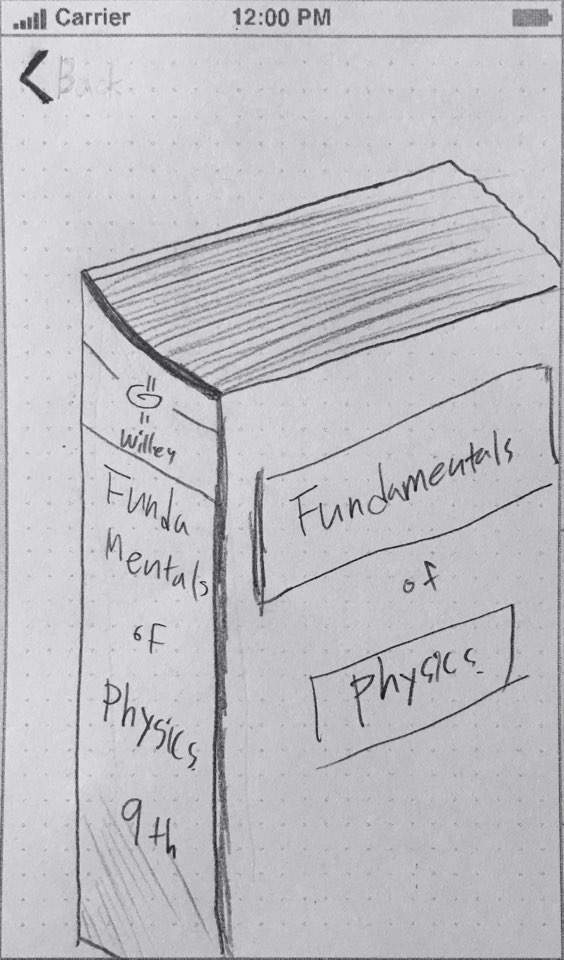 Carrier
12:00 PM
Back
Willey
Funda
mentals
of
Physics
9th
Fundamentals
of
Physics